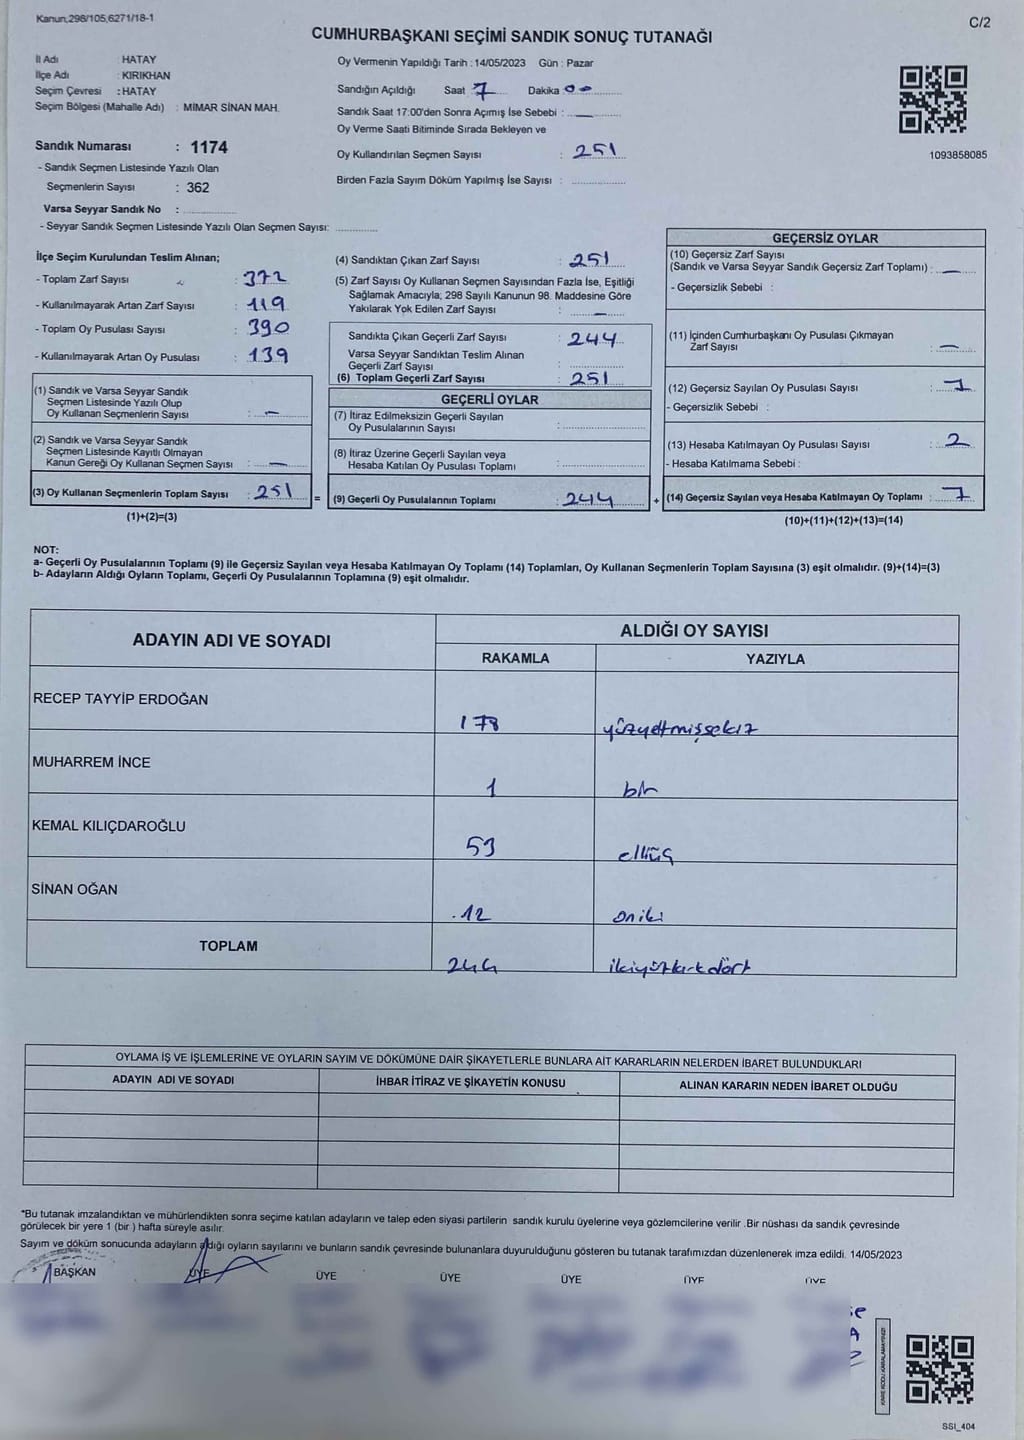 Kanun,298/105,6271/18-1
C/2
CUMHURBAŞKANI SEÇİMİ SANDIK SONUÇ TUTANAĞI
İl Adı : HATAY
İlçe Adı : KIRIKHAN
Seçim Çevresi : HATAY
Seçim Bölgesi (Mahalle Adı) : MİMAR SİNAN MAH.
Sandık Numarası : 1174
- Sandık Seçmen Listesinde Yazılı Olan
Seçmenlerin Sayısı : 362
Varsa Seyyar Sandık No :
- Seyyar Sandık Seçmen Listesinde Yazılı Olan Seçmen Sayısı:
Oy Vermenin Yapıldığı Tarih : 14/05/2023 Gün : Pazar
Sandığın Açıldığı Saat 7 Dakika 00
Sandık Saat 17:00'den Sonra Açımış İse Sebebi : —
Oy Verme Saati Bitiminde Sırada Bekleyen ve
Oy Kullandırılan Seçmen Sayısı : 251
Birden Fazla Sayım Döküm Yapılmış İse Sayısı :
1093858085
İlçe Seçim Kurulundan Teslim Alınan;
- Toplam Zarf Sayısı : 372
- Kullanılmayarak Artan Zarf Sayısı : 119
- Toplam Oy Pusulası Sayısı : 390
- Kullanılmayarak Artan Oy Pusulası : 139
(1) Sandık ve Varsa Seyyar Sandık
Seçmen Listesinde Yazılı Olup
Oy Kullanan Seçmenlerin Sayısı : —
(2) Sandık ve Varsa Seyyar Sandık
Seçmen Listesinde Kayıtlı Olmayan
Kanun Gereği Oy Kullanan Seçmen Sayısı : —
(3) Oy Kullanan Seçmenlerin Toplam Sayısı : 251
(1)+(2)=(3)
(4) Sandıktan Çıkan Zarf Sayısı : 251
(5) Zarf Sayısı Oy Kullanan Seçmen Sayısından Fazla İse, Eşitliği
Sağlamak Amacıyla; 298 Sayılı Kanunun 98. Maddesine Göre
Yakılarak Yok Edilen Zarf Sayısı : —
Sandıkta Çıkan Geçerli Zarf Sayısı : 244
Varsa Seyyar Sandıktan Teslim Alınan
Geçerli Zarf Sayısı :
(6) Toplam Geçerli Zarf Sayısı : 251
GEÇERLİ OYLAR
(7) İtiraz Edilmeksizin Geçerli Sayılan
Oy Pusulalarının Sayısı :
(8) İtiraz Üzerine Geçerli Sayılan veya
Hesaba Katılan Oy Pusulası Toplamı :
= (9) Geçerli Oy Pusulalarının Toplamı : 244
GEÇERSİZ OYLAR
(10) Geçersiz Zarf Sayısı
(Sandık ve Varsa Seyyar Sandık Geçersiz Zarf Toplamı) : —
- Geçersizlik Sebebi :
(11) İçinden Cumhurbaşkanı Oy Pusulası Çıkmayan
Zarf Sayısı : —
(12) Geçersiz Sayılan Oy Pusulası Sayısı :
- Geçersizlik Sebebi :
(13) Hesaba Katılmayan Oy Pusulası Sayısı : 2
- Hesaba Katılmama Sebebi :
+ (14) Geçersiz Sayılan veya Hesaba Katılmayan Oy Toplamı : 7
(10)+(11)+(12)+(13)=(14)
NOT:
a- Geçerli Oy Pusulalarının Toplamı (9) ile Geçersiz Sayılan veya Hesaba Katılmayan Oy Toplamı (14) Toplamları, Oy Kullanan Seçmenlerin Toplam Sayısına (3) eşit olmalıdır. (9)+(14)=(3)
b- Adayların Aldığı Oyların Toplamı, Geçerli Oy Pusulalarının Toplamına (9) eşit olmalıdır.
ADAYIN ADI VE SOYADI
ALDIĞI OY SAYISI
RAKAMLA YAZIYLA
RECEP TAYYİP ERDOĞAN 178 yüzyetmişsekiz
MUHARREM İNCE 1 bir
KEMAL KILIÇDAROĞLU 53 elliüç
SİNAN OĞAN 12 oniki
TOPLAM 244 ikiyüzkırkdört
OYLAMA İŞ VE İŞLEMLERİNE VE OYLARIN SAYIM VE DÖKÜMÜNE DAİR ŞİKAYETLERLE BUNLARA AİT KARARLARIN NELERDEN İBARET BULUNDUKLARI
ADAYIN ADI VE SOYADI İHBAR İTİRAZ VE ŞİKAYETİN KONUSU ALINAN KARARIN NEDEN İBARET OLDUĞU
*Bu tutanak imzalandıktan ve mühürlendikten sonra seçime katılan adayların ve talep eden siyasi partilerin sandık kurulu üyelerine veya gözlemcilerine verilir .Bir nüshası da sandık çevresinde
görülecek bir yere 1 (bir ) hafta süreyle asılır.
Sayım ve döküm sonucunda adayların aldığı oyların sayılarını ve bunların sandık çevresinde bulunanlara duyurulduğunu gösteren bu tutanak tarafımızdan düzenlenerek imza edildi. 14/05/2023
BAŞKAN ÜYE ÜYE ÜYE ÜYE ÜYE ÜYE
SSI_404